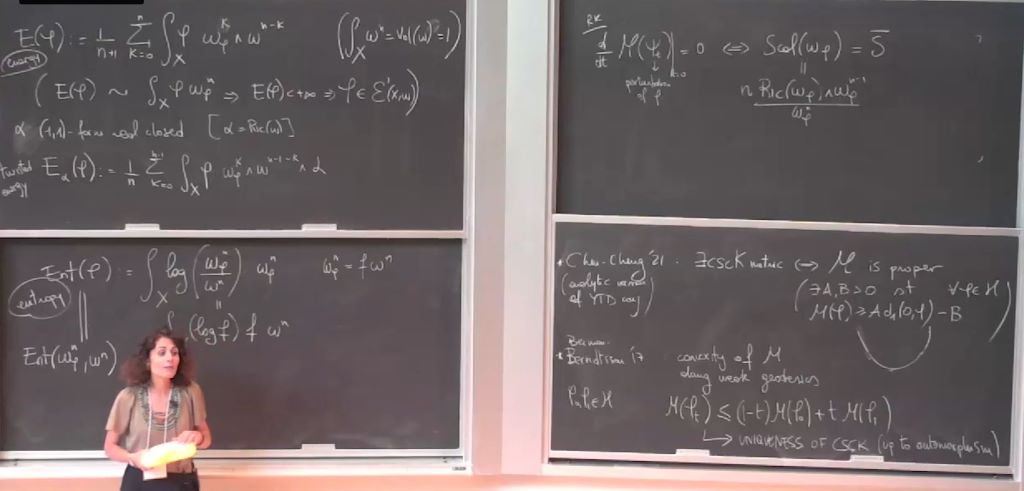 E(φ) := 1/(n+1) Σ_{k=0}^{n} ∫_X φ ω_φ^k ∧ ω^{n-k} (∫_X ω^n = Vol(ω) = 1)
energy
(E(φ) ~ ∫_X φ ω_φ^n ⇒ E(φ) < +∞ ⇒ φ ∈ E^1(X,ω))
α (1,1)-form real closed [α = Ric(ω)]
twisted energy E_α(φ) := 1/n Σ_{k=0}^{n-1} ∫_X φ ω_φ^k ∧ ω^{n-1-k} ∧ α
Ent(φ) := ∫_X log(ω_φ^n / ω^n) ω_φ^n ω_φ^n = f ω^n
entropy
∫ (log f) f ω^n
Ent(ω_φ^n, ω^n)
RK
d/dt M(φ_t)|_{t=0} = 0 ⇔ Scal(ω_φ) = S̄
perturbation of φ
n Ric(ω_φ) ∧ ω_φ^{n-1} / ω_φ^n
• Chen-Cheng '21 : ∃ cscK metric ⇔ M is proper
(analytic version of YTD conj)
(∃ A,B > 0 st ∀ φ ∈ H
M(φ) ≥ A d_1(0,φ) − B)
Berman
• Berndtsson '17 convexity of M
along weak geodesics
φ_0, φ_1 ∈ H M(φ_t) ≤ (1-t) M(φ_0) + t M(φ_1)
↳ UNIQUENESS OF CSCK (up to automorphism)